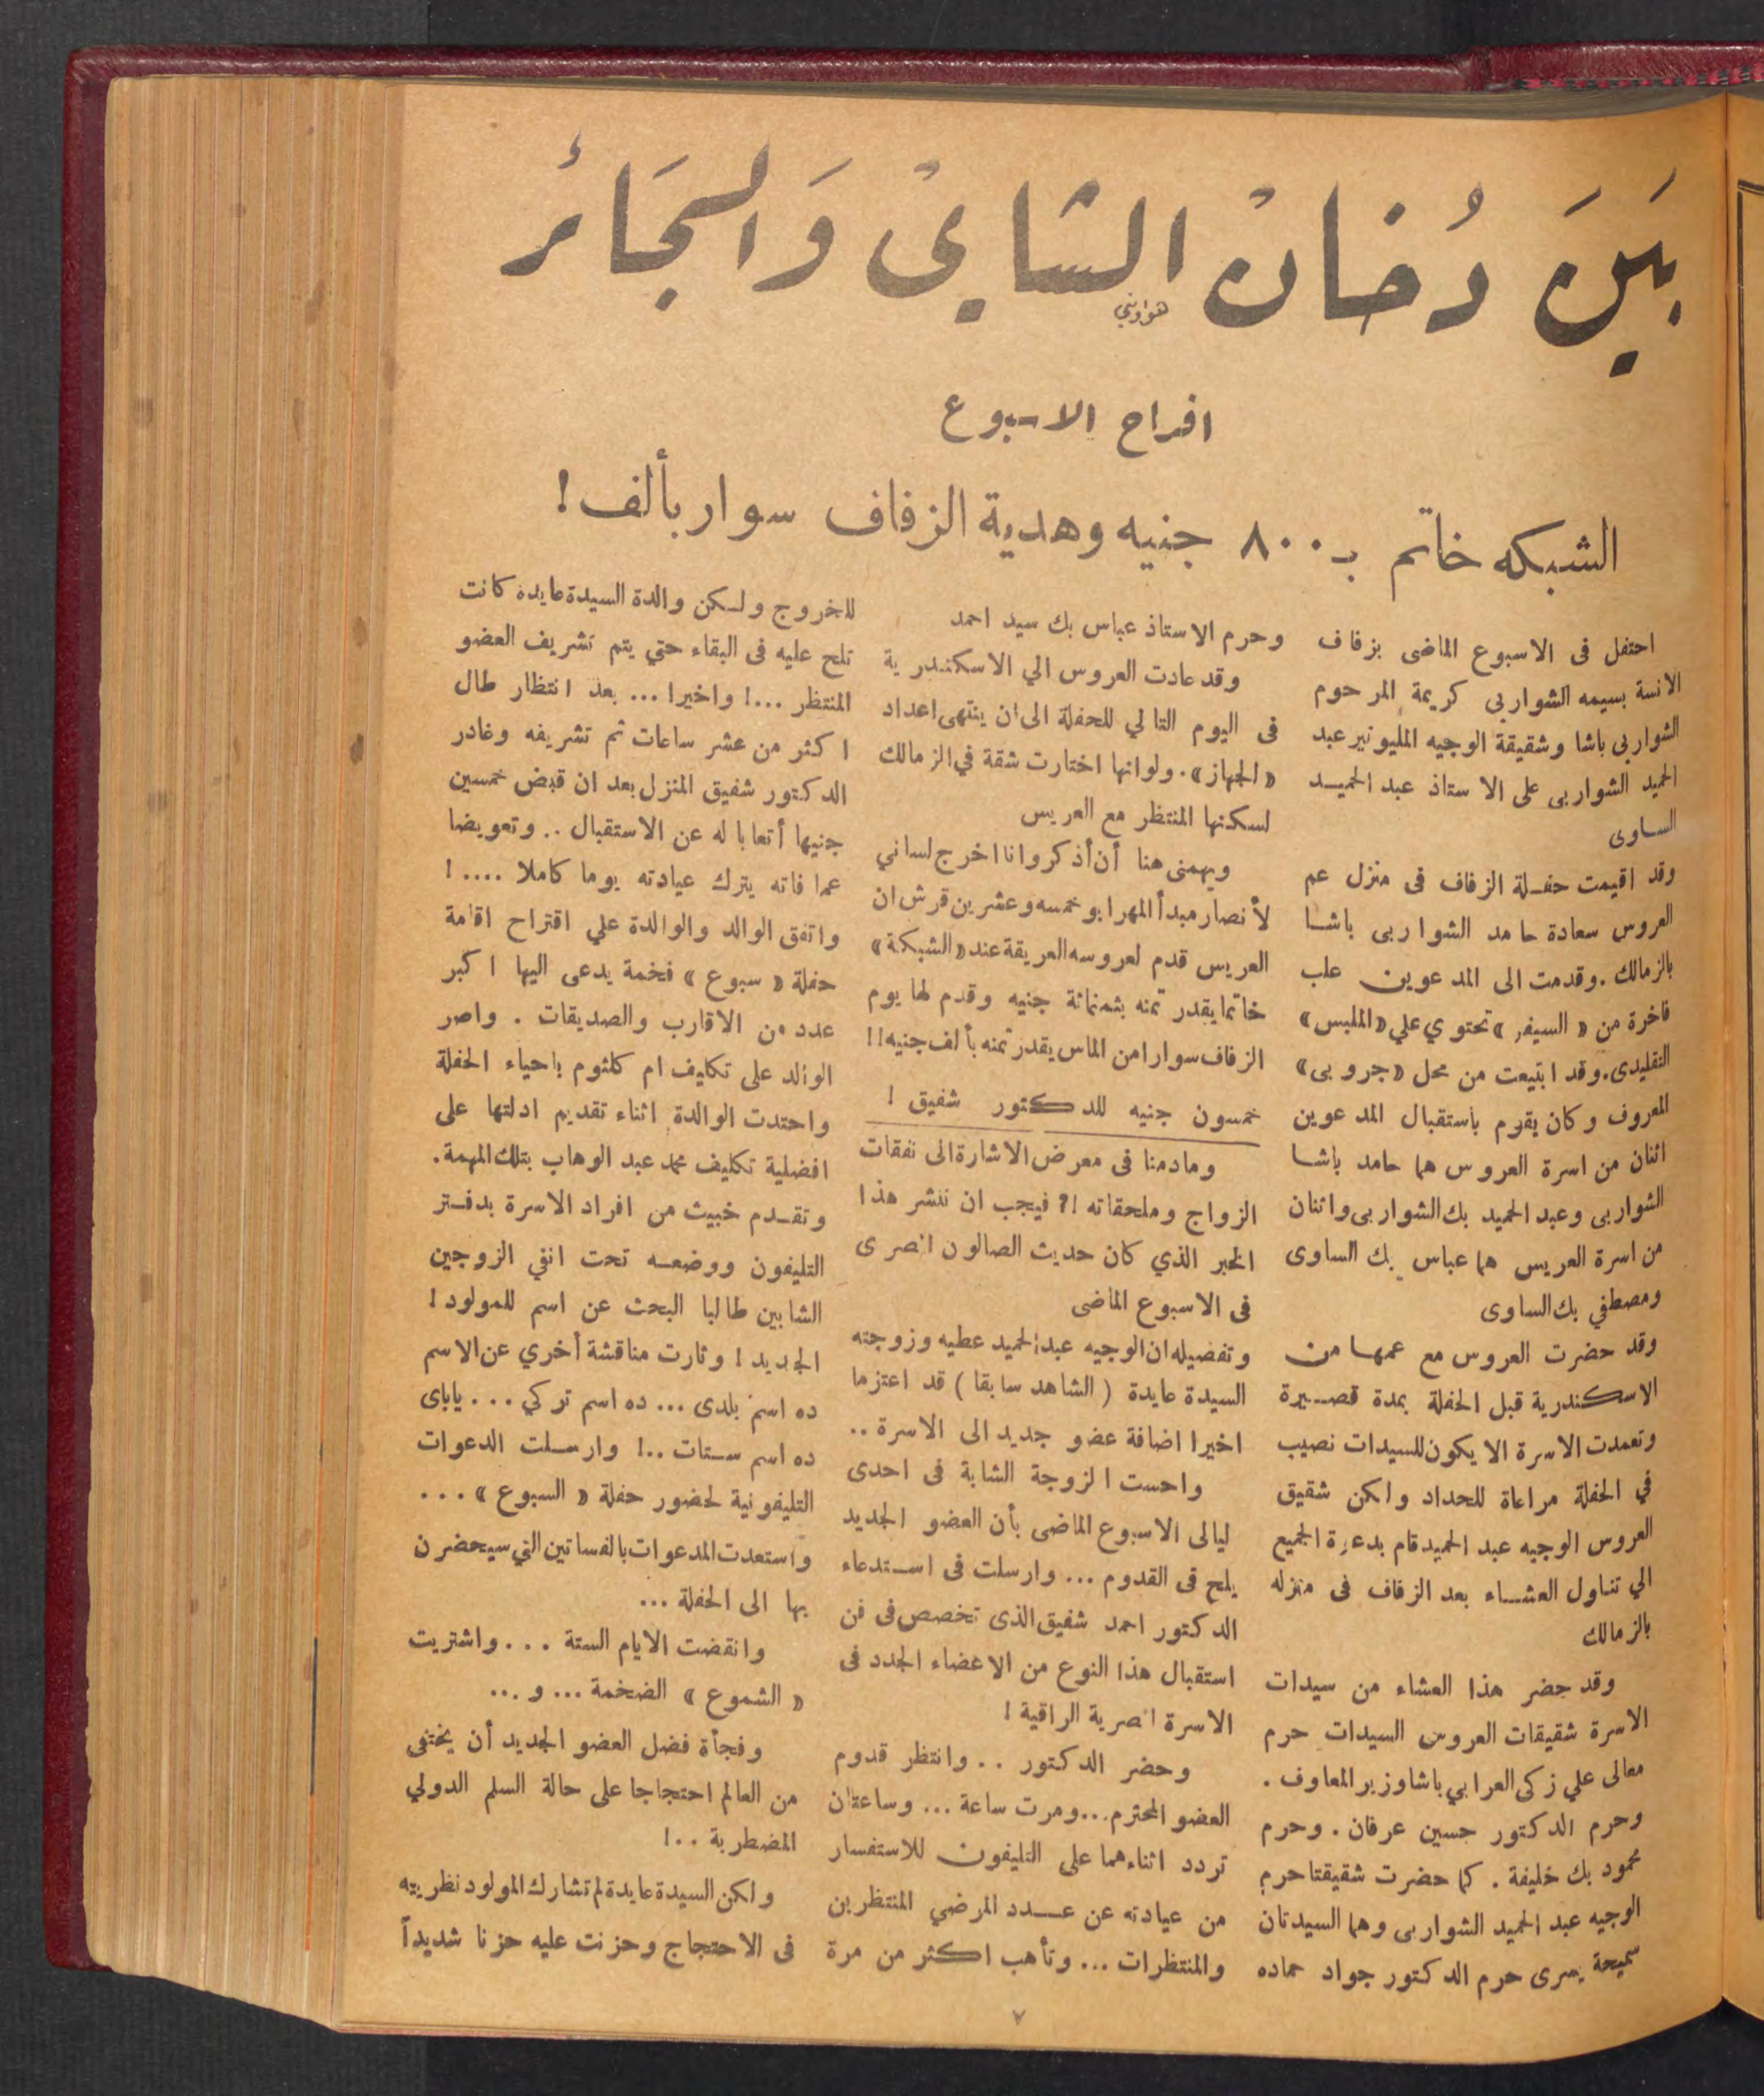 بَينَ دُخانْ الشايْ وَالسَجَائر
هواويني
افراح الاسبوع
الشبكه خاتم بـ ٨٠٠ جنيه وهدية الزفاف سوار بألف !
احتفل فى الاسبوع الماضى بزفاف
الانسة بسيمه الشواربى كريمة المرحوم
الشواربى باشا وشقيقة الوجيه المليونير عبد
الحميد الشواربى على الاستاذ عبد الحميد
الساوى
وقد اقيمت حفلة الزفاف فى منزل عم
العروس سعادة حامد الشواربى باشا
بالزمالك . وقدمت الى المدعوين علب
فاخرة من « السيفر » تحتوي علي « الملبس »
التقليدى . وقد ابتيعت من محل « جروبى »
المعروف وكان يقوم بأستقبال المدعوين
اثنان من اسرة العروس هما حامد باشا
الشواربى وعبد الحميد بك الشواربى واثنان
من اسرة العريس هما عباس بك الساوى
ومصطفي بك الساوى
وقد حضرت العروس مع عمها من
الاسكندرية قبل الحفلة بمدة قصيرة
وتعمدت الاسرة الا يكون للسيدات نصيب
في الحفلة مراعاة للحداد ولكن شقيق
العروس الوجيه عبد الحميد قام بدعوة الجميع
الي تناول العشاء بعد الزفاف فى منزله
بالزمالك
وقد حضر هذا العشاء من سيدات
الاسرة شقيقات العروس السيدات حرم
معالى علي زكى العرابي باشا وزير المعاوف .
وحرم الدكتور حسين عرفان . وحرم
محمود بك خليفة . كما حضرت شقيقتا حرم
الوجيه عبد الحميد الشواربى وهما السيدتان
سميحة يسرى حرم الدكتور جواد حماده
وحرم الاستاذ عباس بك سيد احمد
وقد عادت العروس الي الاسكندرية
فى اليوم التالي للحفلة الى ان ينتهى اعداد
« الجهاز » . ولو انها اختارت شقة في الزمالك
لسكنها المنتظر مع العريس
ويهمنى هنا أن أذكر وانا اخرج لساني
لأنصار مبدأ المهر ابو خمسه وعشرين قرش ان
العريس قدم لعروسه العريقة عند « الشبكة »
خاتما يقدر ثمنه بثمنمائة جنيه وقدم لها يوم
الزفاف سوارا من الماس يقدر ثمنه بألف جنيه !!
خمسون جنيه للدكتور شفيق !
ومادمنا فى معرض الاشارة الى نفقات
الزواج وملحقاته !؟ فيجب ان ننشر هذا
الخبر الذي كان حديث الصالون المصرى
فى الاسبوع الماضى
وتفصيله ان الوجيه عبد الحميد عطيه وزوجته
السيدة عايدة ( الشاهد سابقا ) قد اعتزما
اخيرا اضافة عضو جديد الى الاسرة ..
واحست الزوجة الشابة فى احدى
ليالى الاسبوع الماضى بأن العضو الجديد
يلح فى القدوم ... وارسلت فى استدعاء
الدكتور احمد شفيق الذى تخصص فى فن
استقبال هذا النوع من الاعضاء الجدد فى
الاسرة المصرية الراقية !
وحضر الدكتور .. وانتظر قدوم
العضو المحترم ... ومرت ساعة ... وساعتان
تردد اثناءهما على التليفون للاستفسار
من عيادته عن عدد المرضي المنتظرين
والمنتظرات ... وتأهب اكثر من مرة
للخروج ولكن والدة السيدة عايده كانت
تلح عليه فى البقاء حتي يتم تشريف العضو
المنتظر ...! واخيرا ... بعد انتظار طال
اكثر من عشر ساعات تم تشريفه وغادر
الدكتور شفيق المنزل بعد ان قبض خمسين
جنيها أتعابا له عن الاستقبال .. وتعويضا
عما فاته بترك عيادته يوما كاملا .... !
واتفق الوالد والوالدة علي اقتراح اقامة
حفلة « سبوع » فخمة يدعى اليها اكبر
عدد من الاقارب والصديقات . واصر
الوالد على تكايف ام كلثوم باحياء الحفلة
واحتدت الوالدة اثناء تقديم ادلتها على
افضلية تكليف محمد عبد الوهاب بتلك المهمة .
وتقدم خبيث من افراد الاسرة بدفتر
التليفون ووضعه تحت انفي الزوجين
الشابين طالبا البحث عن اسم للمولود !
الجديد ! وثارت مناقشة أخري عن الاسم
ده اسم بلدى ... ده اسم تركي ... ياباى
ده اسم ستات ..! وارسلت الدعوات
التليفونية لحضور حفلة « السبوع » ...
واستعدت المدعوات بالفساتين التي سيحضرن
بها الى الحفلة ...
وانقضت الايام الستة ... واشتريت
« الشموع » الضخمة ... و ...
وفجأة فضل العضو الجديد أن يختفى
من العالم احتجاجا على حالة السلم الدولي
المضطربة ..!
ولكن السيدة عايدة لم تشارك المولود نظريته
فى الاحتجاج وحزنت عليه حزنا شديداً
٧